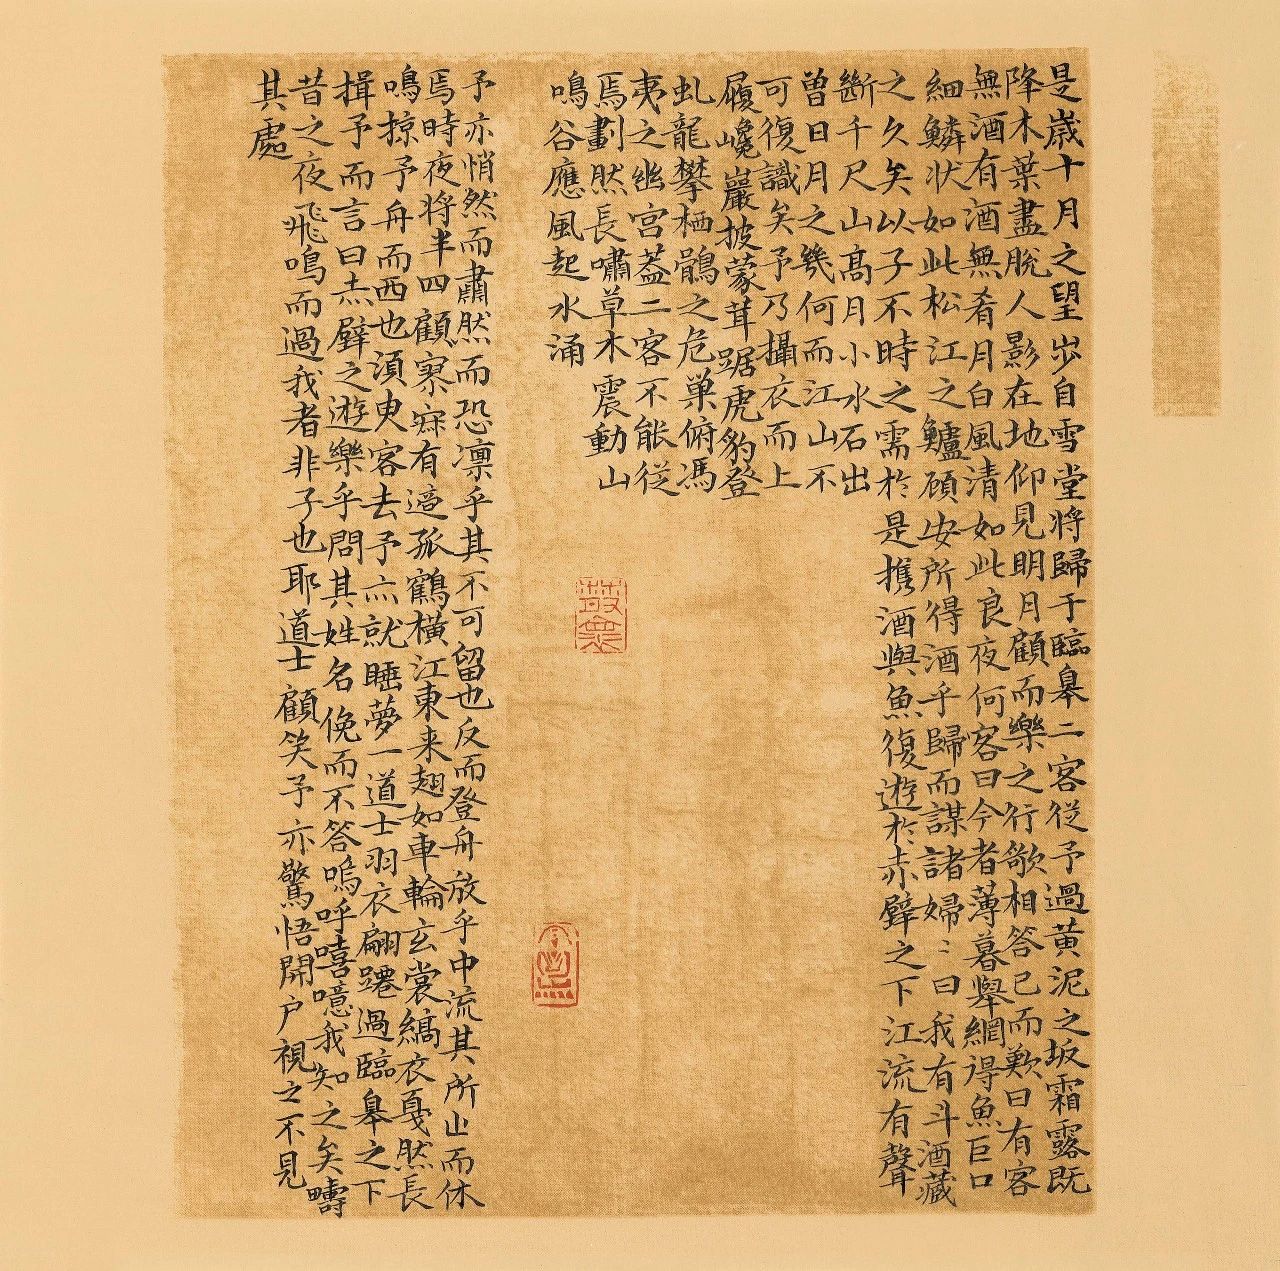 是歲十月之望步自雪堂將歸于臨皋二客從予過黃泥之坂霜露既
降木葉盡脫人影在地仰見明月顧而樂之行歌相答已而歎曰有客
無酒有酒無肴月白風清如此良夜何客曰今者薄暮舉網得魚巨口
細鱗狀如此松江之鱸顧安所得酒乎歸而謀諸婦〻曰我有斗酒藏
之久矣以子不時之需於是携酒與魚復遊於赤壁之下江流有聲
斷千尺山高月小水石出
曾日月之幾何而江山不
可復識矣予乃攝衣而上
履巉巖披蒙茸踞虎豹登
虬龍攀栖鶻之危巢俯馮
夷之幽宮蓋二客不能從
焉劃然長嘯草木震動山
鳴谷應風起水涌
予亦悄然而肅然而恐凛乎其不可留也反而登舟放乎中流其所止而休
焉時夜將半四顧寥寂有適孤鶴橫江東来翅如車輪玄裳縞衣戛然長
鳴掠予舟而西也須臾客去予亦就睡夢一道士羽衣翩躚過臨皋之下
揖予而言曰赤壁之遊樂乎問其姓名俛而不答嗚呼嘻噫我知之矣疇
昔之夜飛鳴而過我者非子也耶道士顧笑予亦驚悟開户視之不見
其處